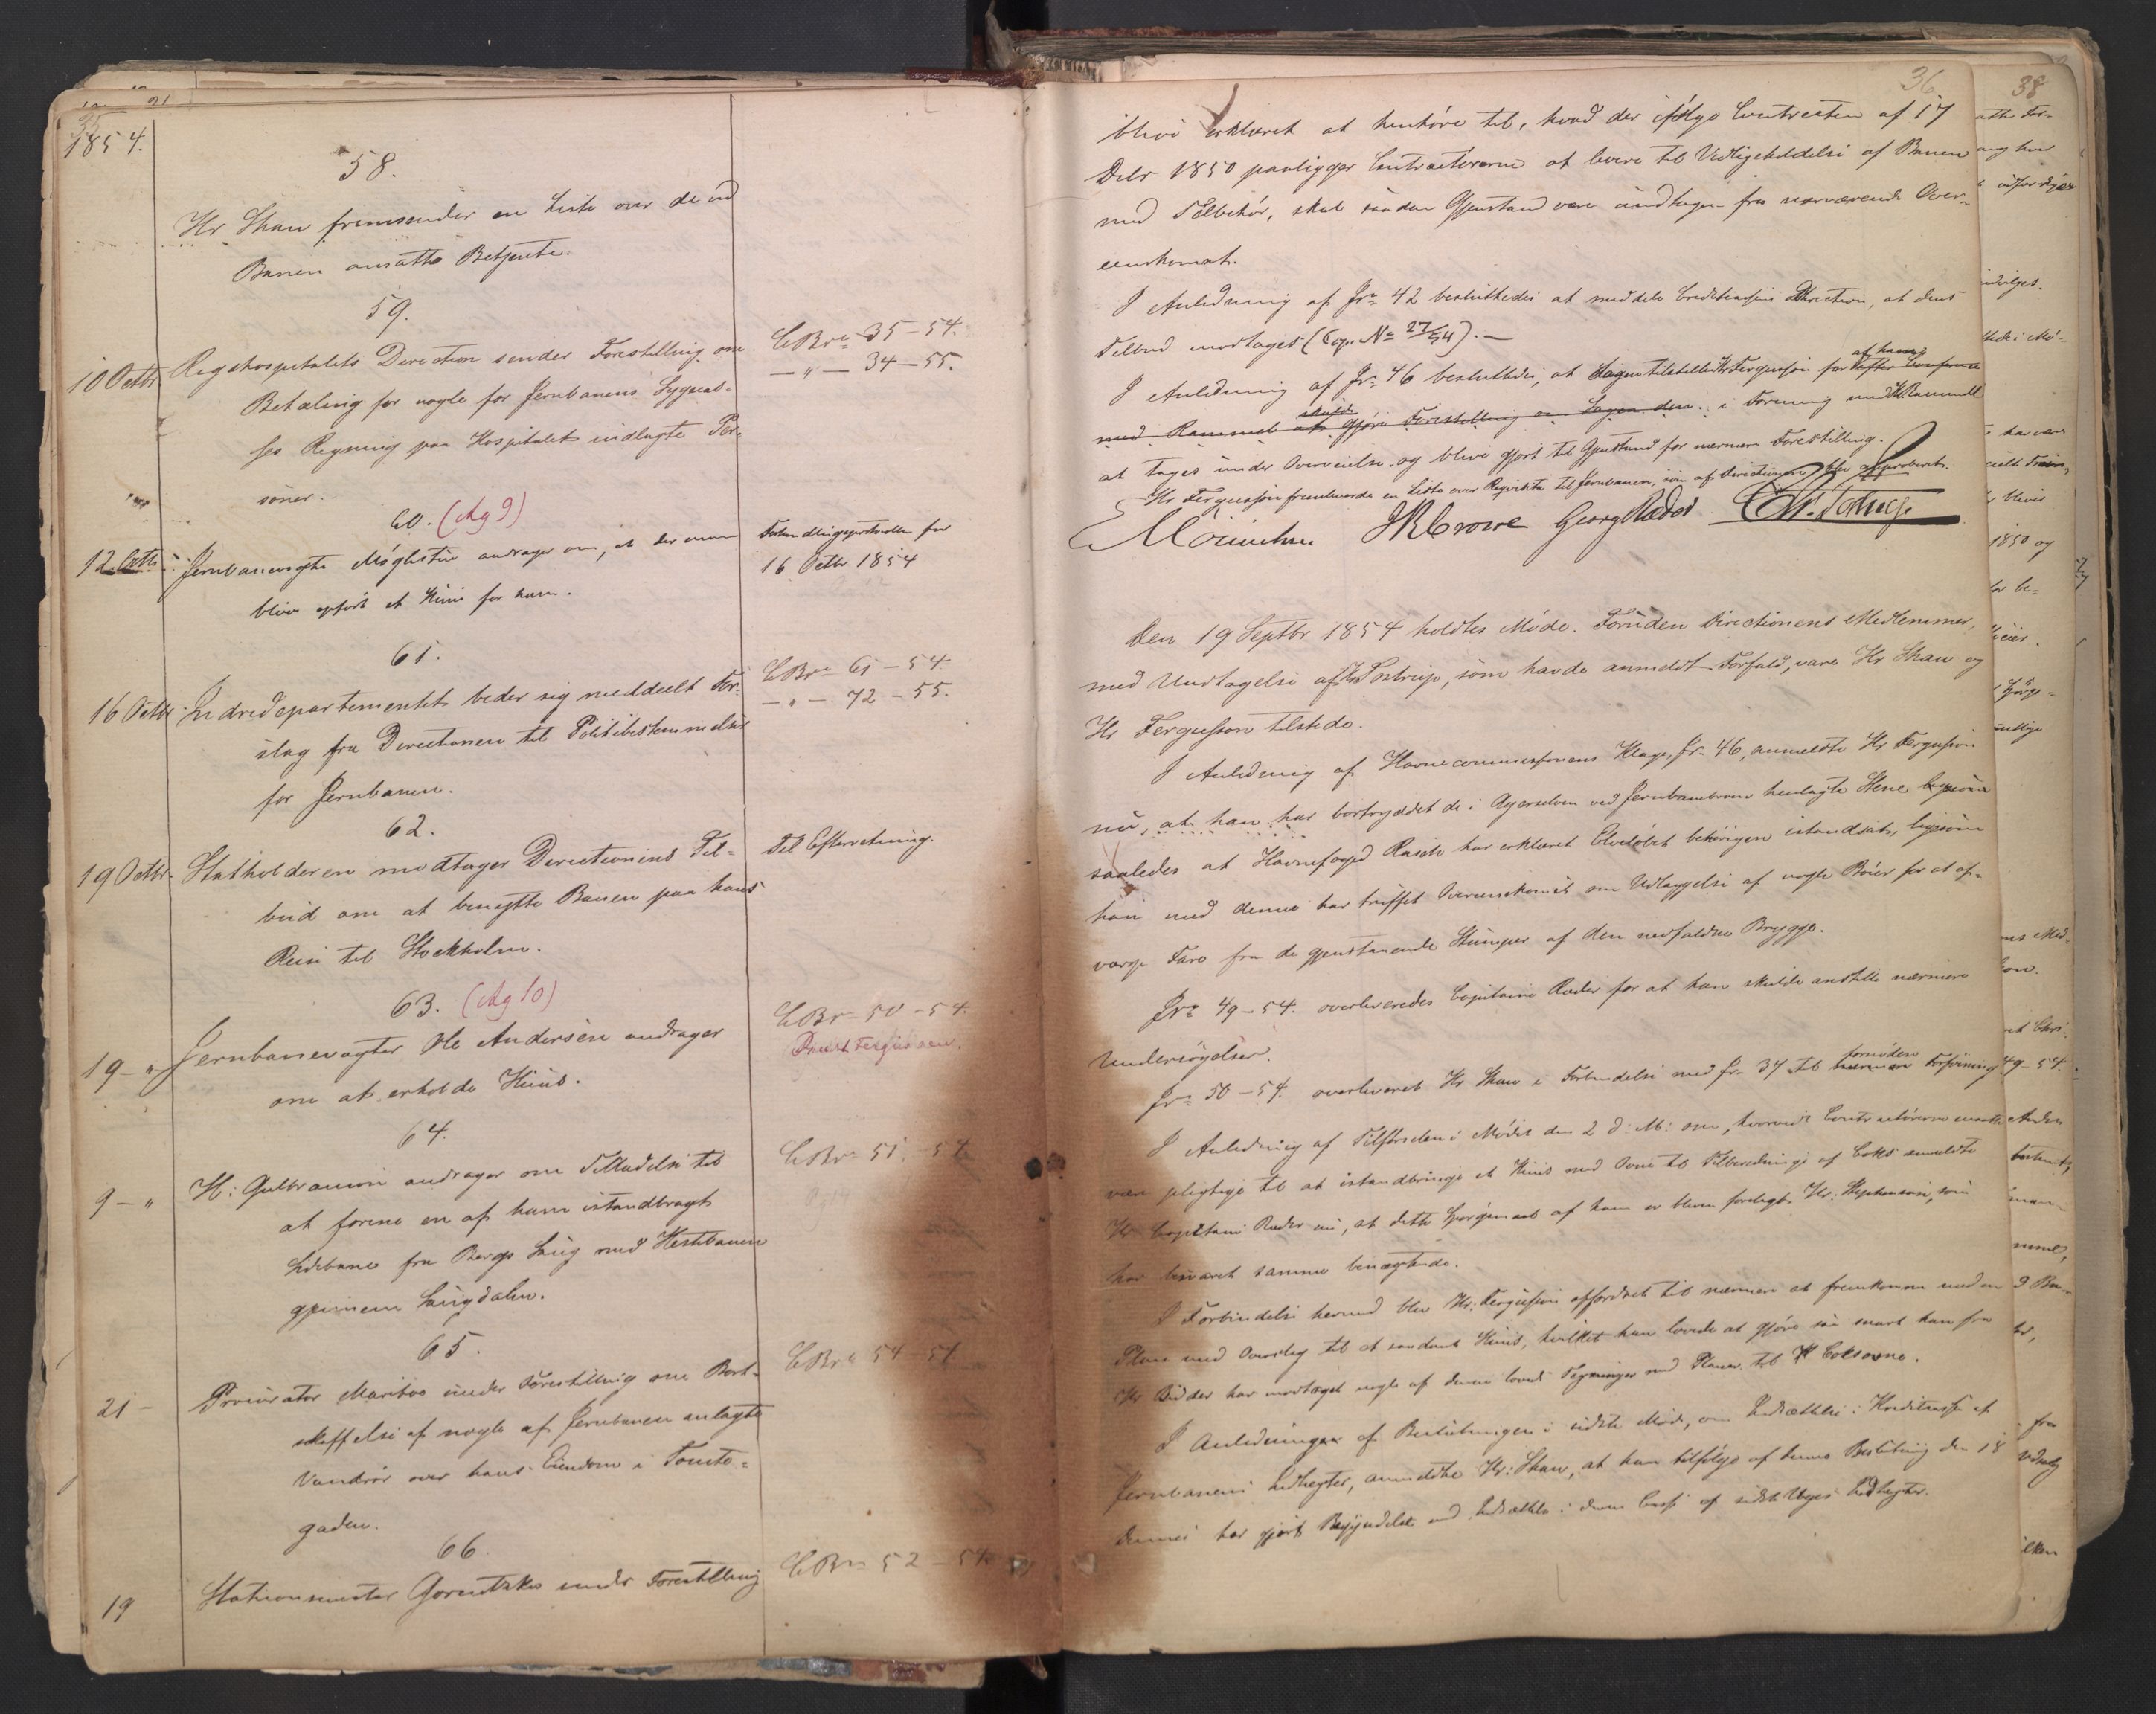 35
1854.
58.
Hr Shaw fremsender en Liste over de ved
Banen ansatte Betjente.
59.
10 Octbr. Rigshospitalets Direction sender Forestilling om
Betaling for nogle for Jernbanens Sygeas-
ses Regning paa Hospitalet indlagte Per-
soner.
C Br. 35-54.
— " — 34-55.
60. (Ag 9)
12 Octbr. Jernbanevogter Møglestue andrager om, at der maa
blive opført et Huus for ham.
Forhandlingsprotocollen for
16 Octbr 1854
61.
16 Octbr Indredepartementet beder sig meddeelt For-
slag fra Directionen til Politibestemmelser
for Jernbanen.
C Br 61-54
— " — 72-55.
62.
19 Octbr. Statholderen modtager Directionens Til-
bud om at benytte Banen paa hans
Reise til Stockholm.
Til Efterretning.
63. (Ag 10)
19 - " Jernbanevogter Ole Andersen andrager
om at erholde Huus.
C Br 50-54.
64.
9 - " H: Gulbranson andrager om Tilladelse til
at forene en af ham istandbragt
Sidebane fra Bergs Saug med Hestebanen
gjennem Saugdalen.
C Br 51-54
65.
21 - Procurator Maribo sender Forestilling om Bort-
skaffelse af nogle af Jernbanen anlagte
Vandrør over hans Eiendom i Tomte-
gaden.
C Br 54-54
66.
19 Stationsmester Gorentzko sender Forestilling
C Br 52-54
36
blive erklæret at henhøre til, hvad der ifølge Contracten af 17
Decbr 1850 paaligger Contractørerne at levere til Vedligeholdelse af Banen
med Tilbehør, skal saadan Gjenstand være undtagen fra nærværende Over-
eenskomst.
I Anledning af Jr. 42 besluttedes at meddele Creditcassens Direction, at dens
Tilbud modtages (Cop. No 27/54). —
I Anledning af Jr. 46 besluttedes, at Sagen tilstilles Hr Fergusson for af ham efter Conference
med Rammel at skulde gjøre Forestilling om Sagen i Forening med Hr Rammell
at tages under Overveielse og blive gjort til Gjenstand for nærmere Forestilling.
Hr Fergusson fremleverede en Liste over Reqvisita til Jernbanen, som af Directionen blev approberet.
JR Crowe Georg Ræder
Den 19 Septbr 1854 holdtes Møde. Foruden Directionens Medlemmer,
med Undtagelse af Hr Tostrup, som havde anmeldt Forfald, vare Hr Shaw og
Hr Fergusson tilstede.
I Anledning af Havnecommissionens Klage, Jr. 46, anmeldte Hr Fergusson
nu, at han har bortryddet de i Agerselven ved Jernbanebroen henlagte Stene
saaledes at Havnefoged Rasch har erklæret Elveløbet behørigen istandsat, ligesom
han med denne har truffet Overeenskomst om Udlæggelse af nogle Bøier for at af-
værge Fare fra de gjenstaaende Stumper af den nedfaldne Brygge.
Jr. 49-54. overleveredes Capitaine Ræder for at han skulde anstille nærmere
Undersøgelser.
Jr. 50-54. overleveret Hr Shaw i Forbindelse med Jr. 34 til fornøden Forføining
I Anledning af Tilførselen i Mødet den 2 d: M: om, hvorvidt Contractørerne maatte
være pligtige til at istandbringe et Huus med Ovne til Tilberedning af Coks anmeldte
Hr Capitain Ræder nu, at dette Spørgsmaal af ham er bleven forelagt Hr. Stephenson, som
har besvaret samme benægtende.
I Forbindelse hermed blev Hr: Fergusson opfordret til nærmere at fremkomme med en
Plan med Overslag til et saadant Huus, hvilket han lovede at gjøre saa snart han fra
Hr Bidder har modtaget nogle af denne lovede Tegninger med Planer til Coksovne.
I Anledningen af Beslutningen i sidste Møde, om Indsættelse i af
Jernbanens Indtægter, anmeldte Hr: Shaw, at han tilfølge af denne Beslutning den 18
dennes har gjort Begyndelse med Indsættelse i denne Casse af sidste Uges Indtægter.
38